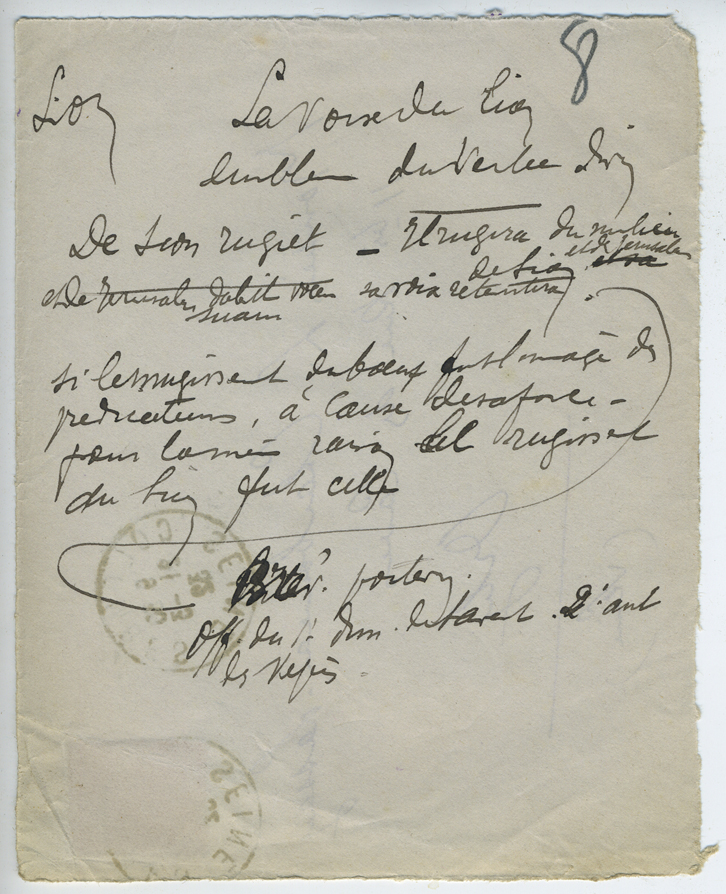 8
Lion La Voix du Lion
Emblem du Verbe Divin
De Sion rugiet - Et rugira du milieu
de Sion et de Jerusalem et sa
et De Jerusalem dabit vocem sa voix retentira
suam
si le mugissement du bœuf fut l'image des
predicateurs, à cause de sa force -
pour la même raison le rugissement
du lion fut celle
Brev. poitevin.
Off. du 1r dim. de l'avent. 2e ant
des Vepres
SEINE